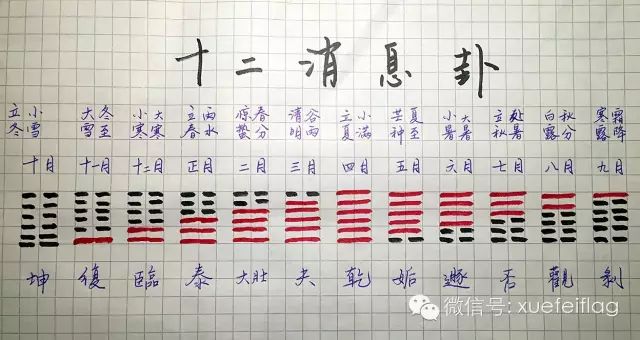 十二消息卦
立小 大冬 小大 立雨 惊春 清谷 立小 芒夏 小大 立处 白秋 寒霜
冬雪 雪至 寒寒 春水 蛰分 明雨 夏满 神至 暑暑 秋暑 露分 露降
十月 十一月 十二月 正月 二月 三月 四月 五月 六月 七月 八月 九月
坤 復 臨 泰 大壮 夬 乾 姤 遯 否 觀 剝
微信号: xuefeiflag